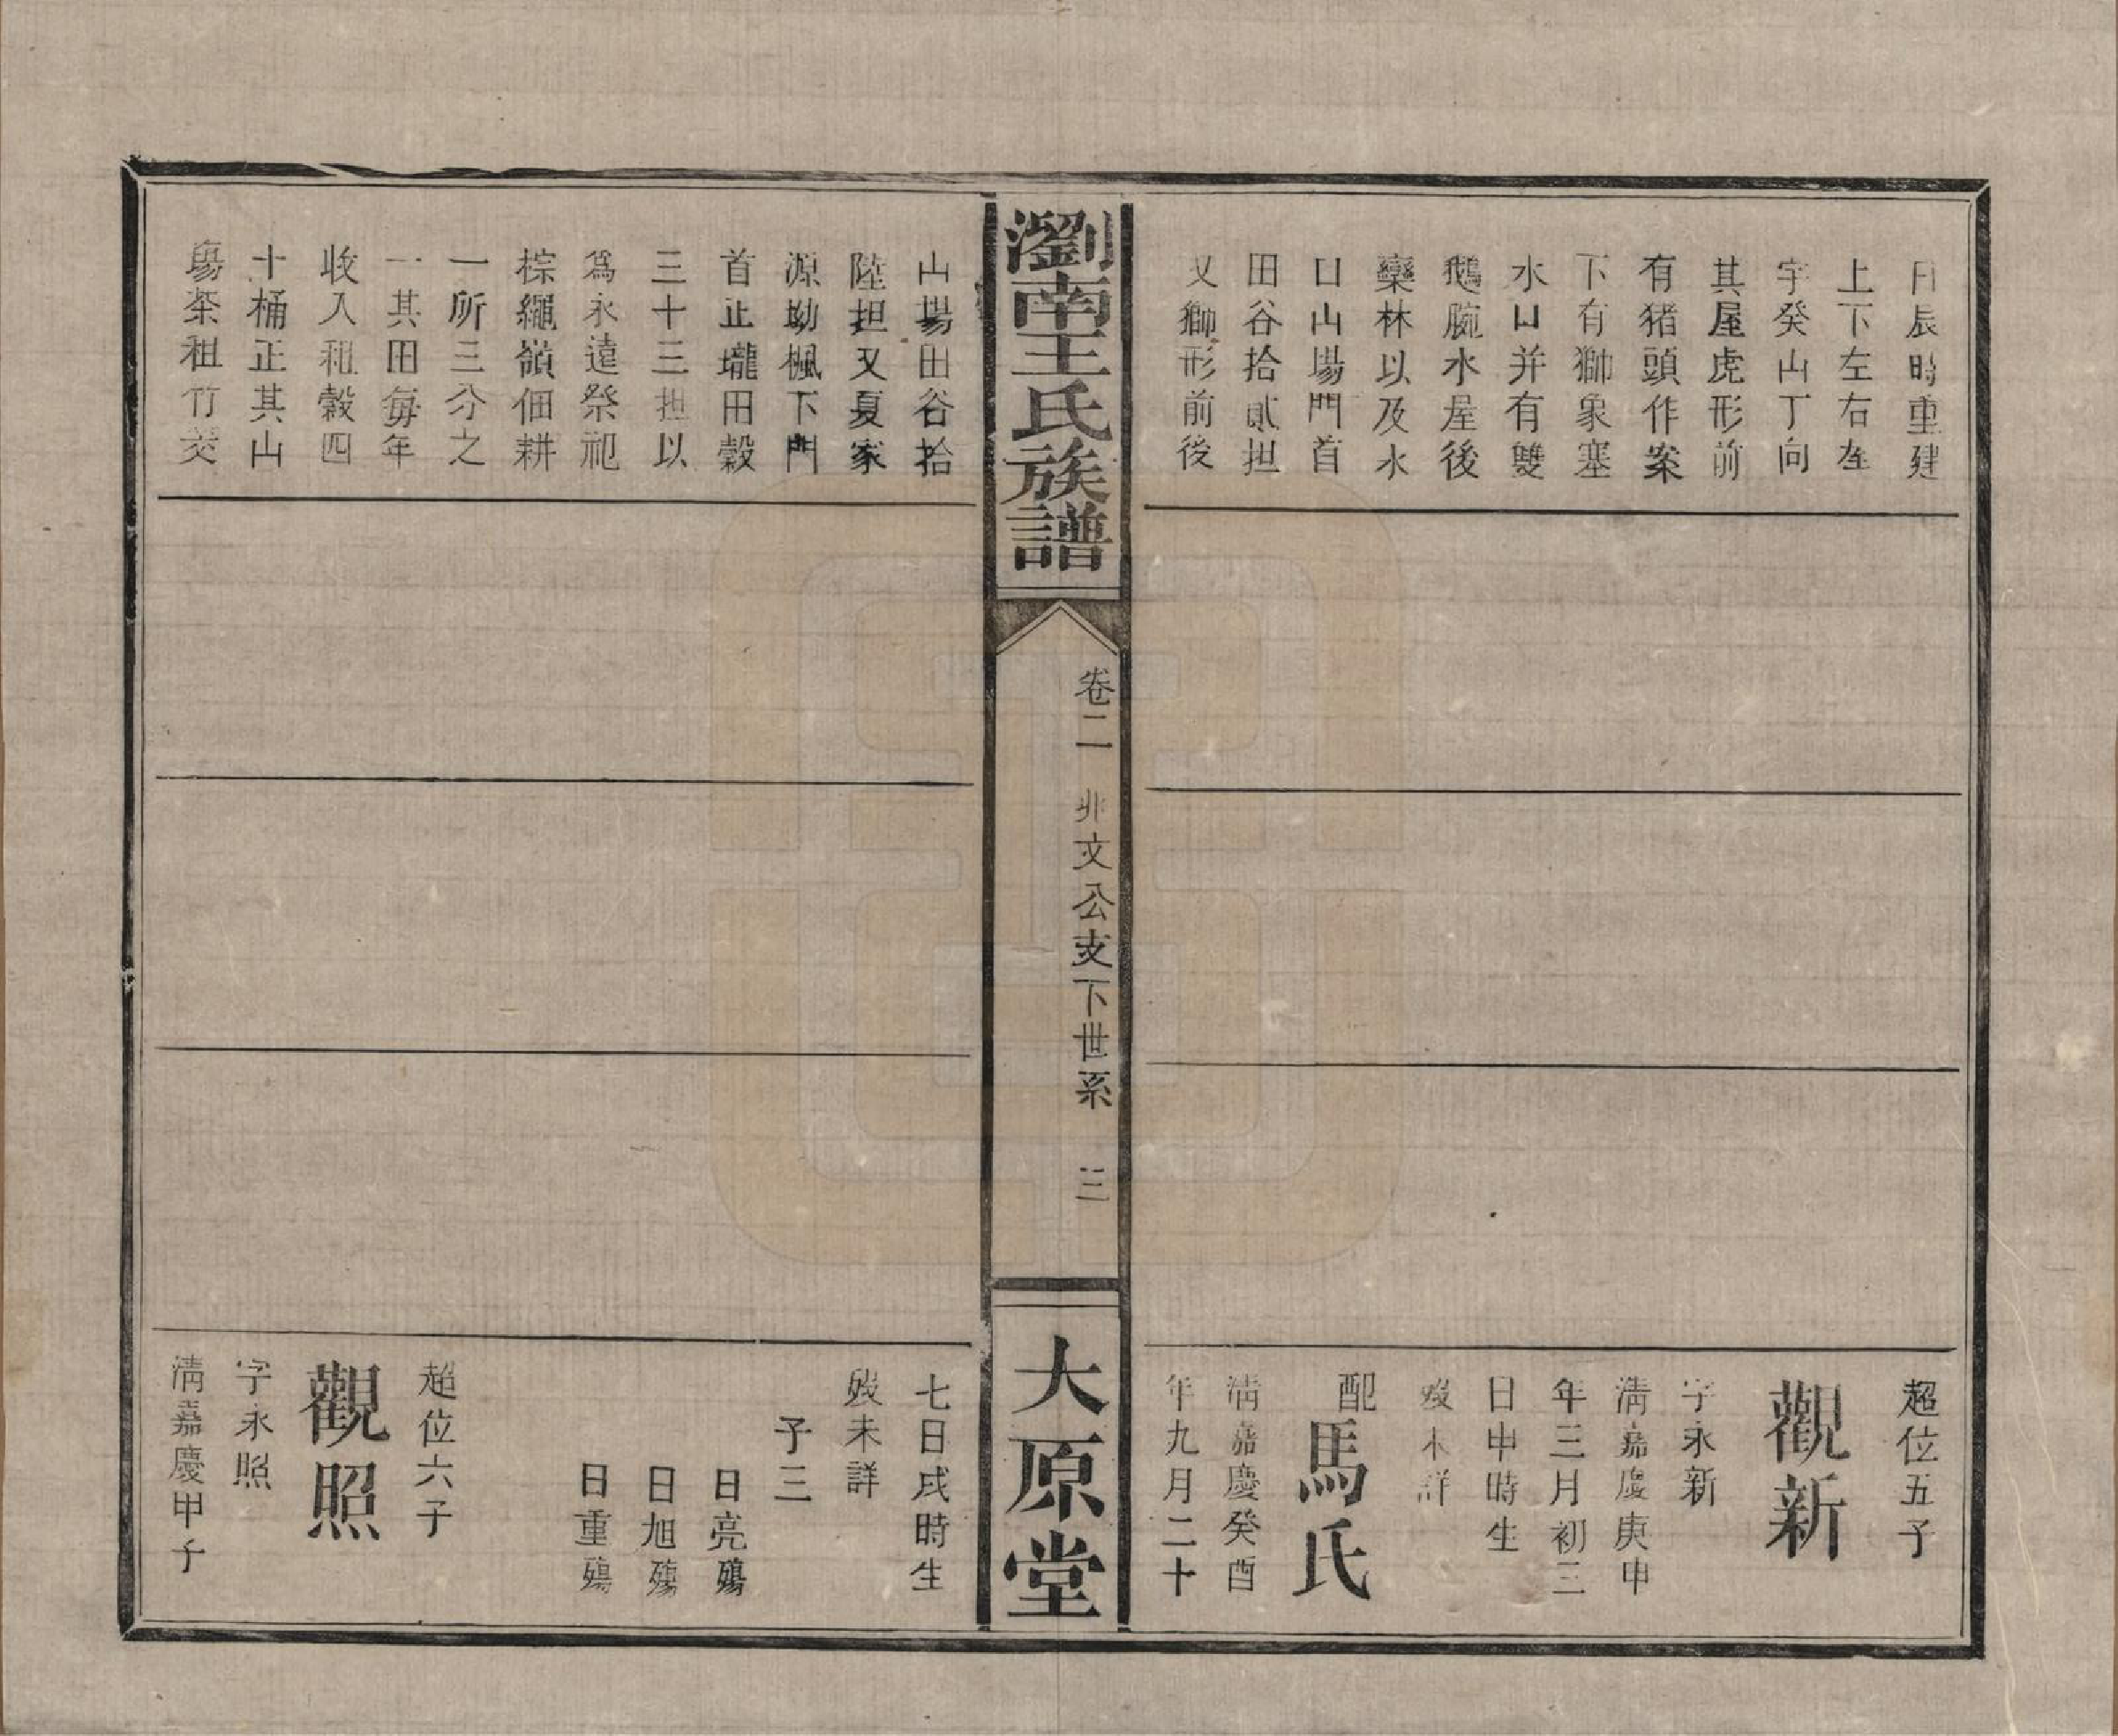 日辰時重建
上下左右左
字癸山丁向
其屋虎形前
有猪頭作案
下有獅象塞
水口并有雙
鵝腕水屋後
藥林以及水
口山場門首
田谷拾貳担
又獅形前後
超位五子
觀新
字永新
淸嘉慶庚申
年三月初三
日申時生
歿未詳
配馬氏
淸嘉慶癸酉
年九月二十
瀏南王氏族譜
卷二 非文公支下世系 三
大原堂
山場田谷拾
陸担又夏家
源坳楓下門
首止壠田穀
三十三担以
爲永遠祭祀
棕繩嶺佃耕
一所三分之
一其田每年
收入租穀四
十桶正其山
塲茶租竹
七日戌時生
歿未詳
子三
日亮殤
日旭殤
日重殤
超位六子
觀照
字永照
淸嘉慶甲子